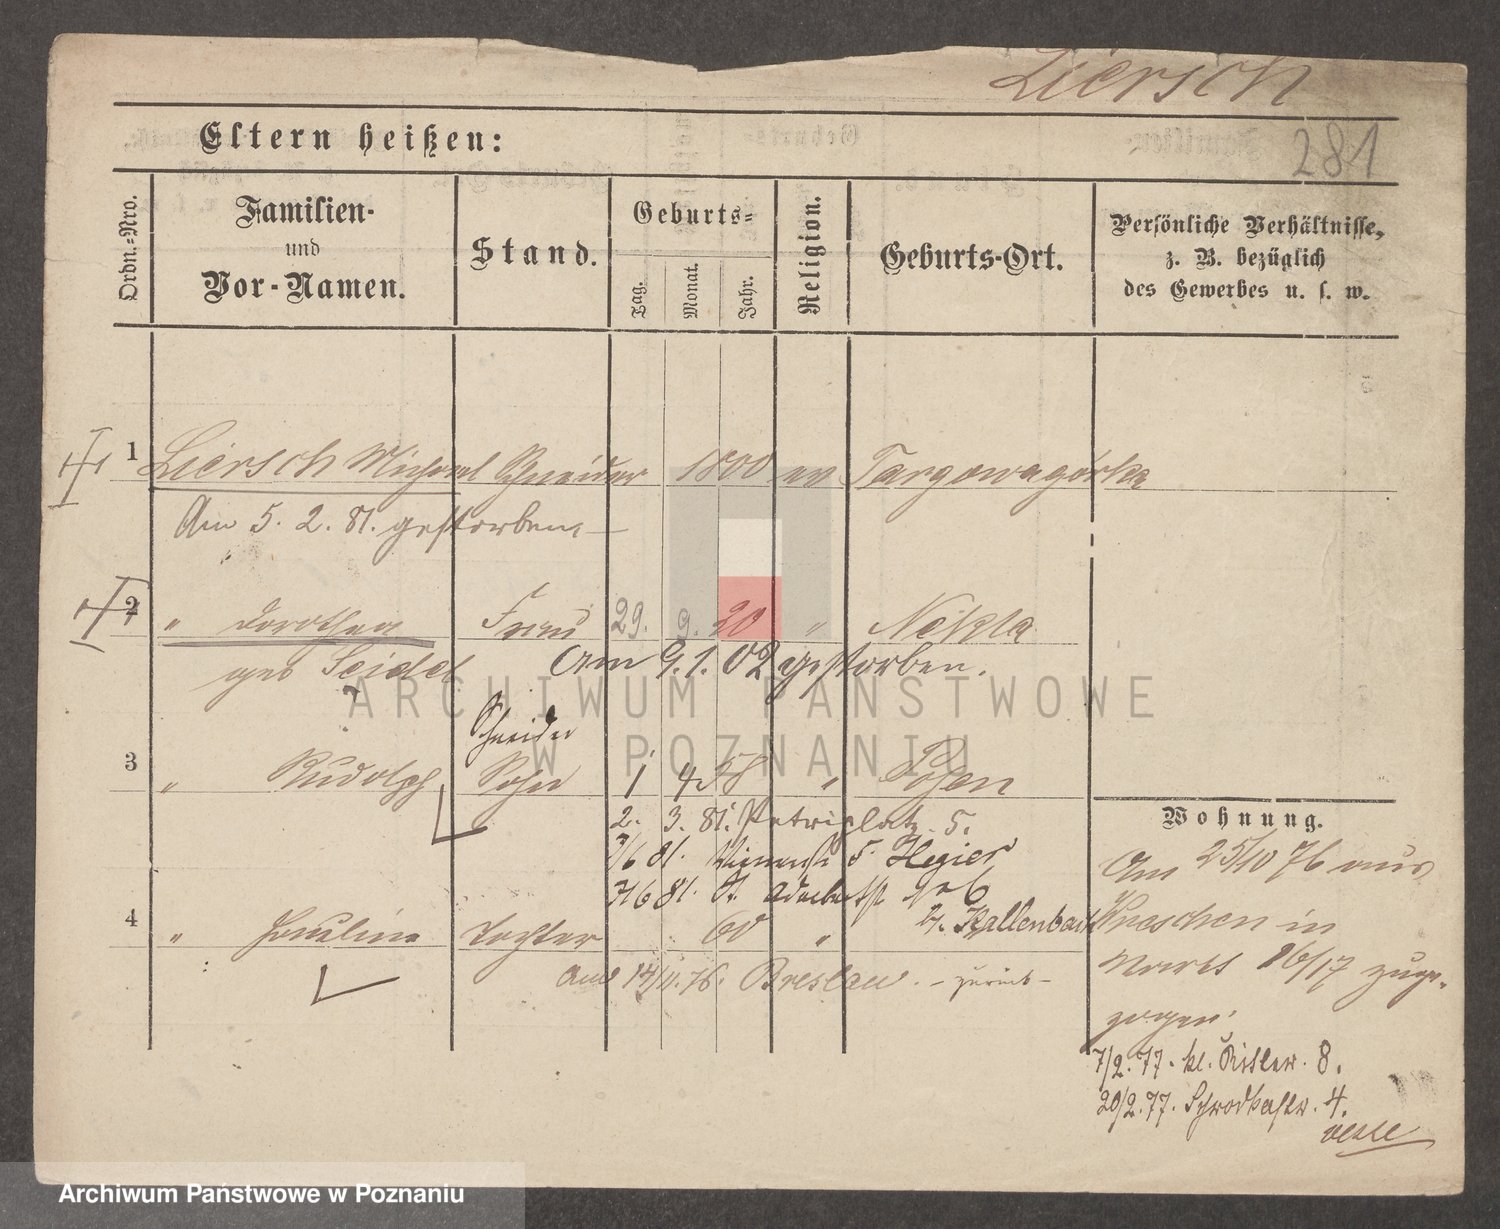 Liersch
281
Eltern heißen:
Ordn.-Nro.
Familien-
und
Vor-Namen.
Stand.
Geburts-
Tag.
Monat.
Jahr.
Religion.
Geburts-Ort.
Persönliche Verhältnisse,
z. B. bezüglich
des Gewerbes u. s. w.
1 Liersch Michael Schneider 1800 ev Targowagórka
Am 5. 2. 81. gestorben
2 " Dorothea Frau 29. 9. 20 " Nekla
geb Seidel am 9.1.02 gestorben.
Schneider
3 " Rudolph Sohn 1 4 58 " Posen
2. 3. 81. Petriplatz 5.
7/6 81. 5. Hegier
7/6 81. St. Adalbertstr No 6
b. Kallenbach
4 " Pauline Tochter 60 "
Am 14/11.76. Breslau. - zurück -
Wohnung.
Am 25/10 76 aus
Wreschen in
Markt 16/17 zuge-
zogen.
7/2.77. kl. Ritter. 8.
20/2.77. Schrodkastr. 4.
ARCHIWUM PAŃSTWOWE
W POZNANIU
Archiwum Państwowe w Poznaniu